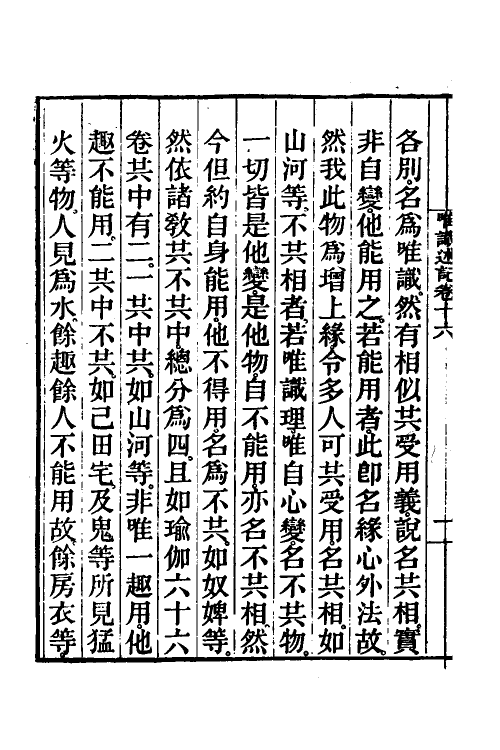 唯識述記卷十六
各別。名爲唯識。然有相似共受用義。說名共相。實
非自變。他能用之。若能用者。此卽名緣心外法故。
然我此物爲增上緣。令多人可共受用。名共相。如
山河等。不共相者。若唯識理。唯自心變。名不共物。
一切皆是他變。是他物。自不能用。亦名不共相。然
今但約自身能用。他不得用。名爲不共。如奴婢等。
然依諸教。共不共中。總分爲四。且如瑜伽六十六
卷。共中有二。一共中共。如山河等。非唯一趣用。他
趣不能用。二共中不共。如己田宅。及鬼等所見猛
火等物。人見爲水。餘趣餘人不能用故。餘房衣等。